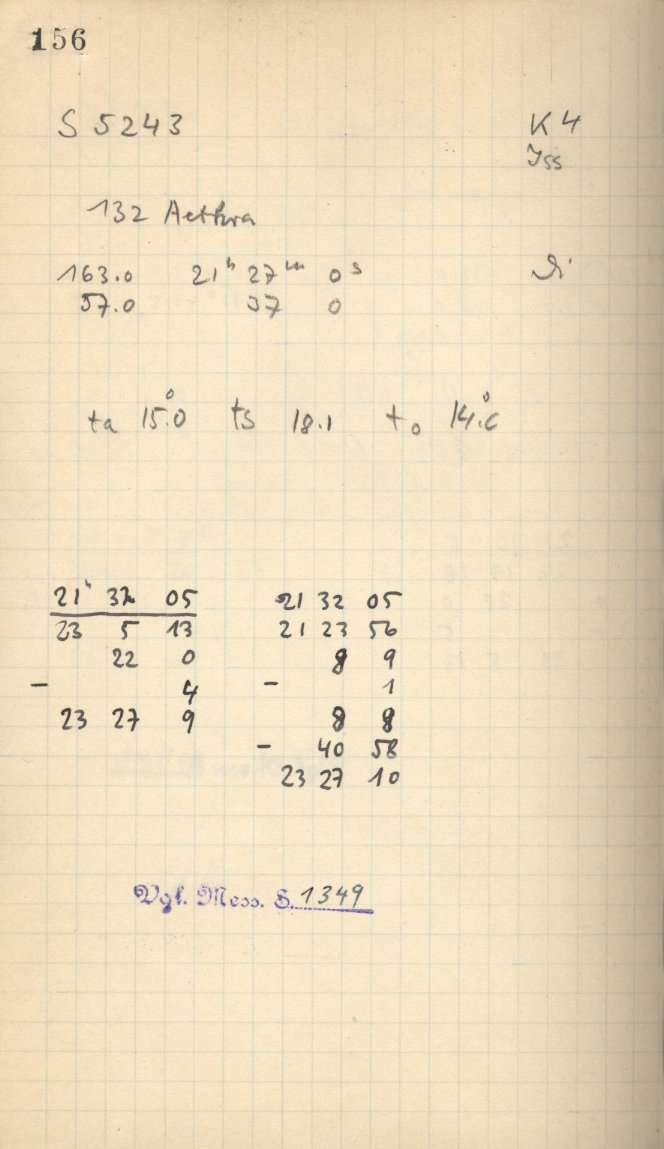 156
S 5243 K 4
Iss
132 Aethra
163.0 21ʰ 27ᵐ 0ˢ
57.0 37 0
ta 15.°0 ts 18.1 t₀ 14.°6
21ʰ 32 05 21 32 05
23 5 13 21 23 56
22 0 8 9
– 4 – 1
23 27 9 8 8
– 40 58
23 27 10
Vgl. Mess. S. 1349